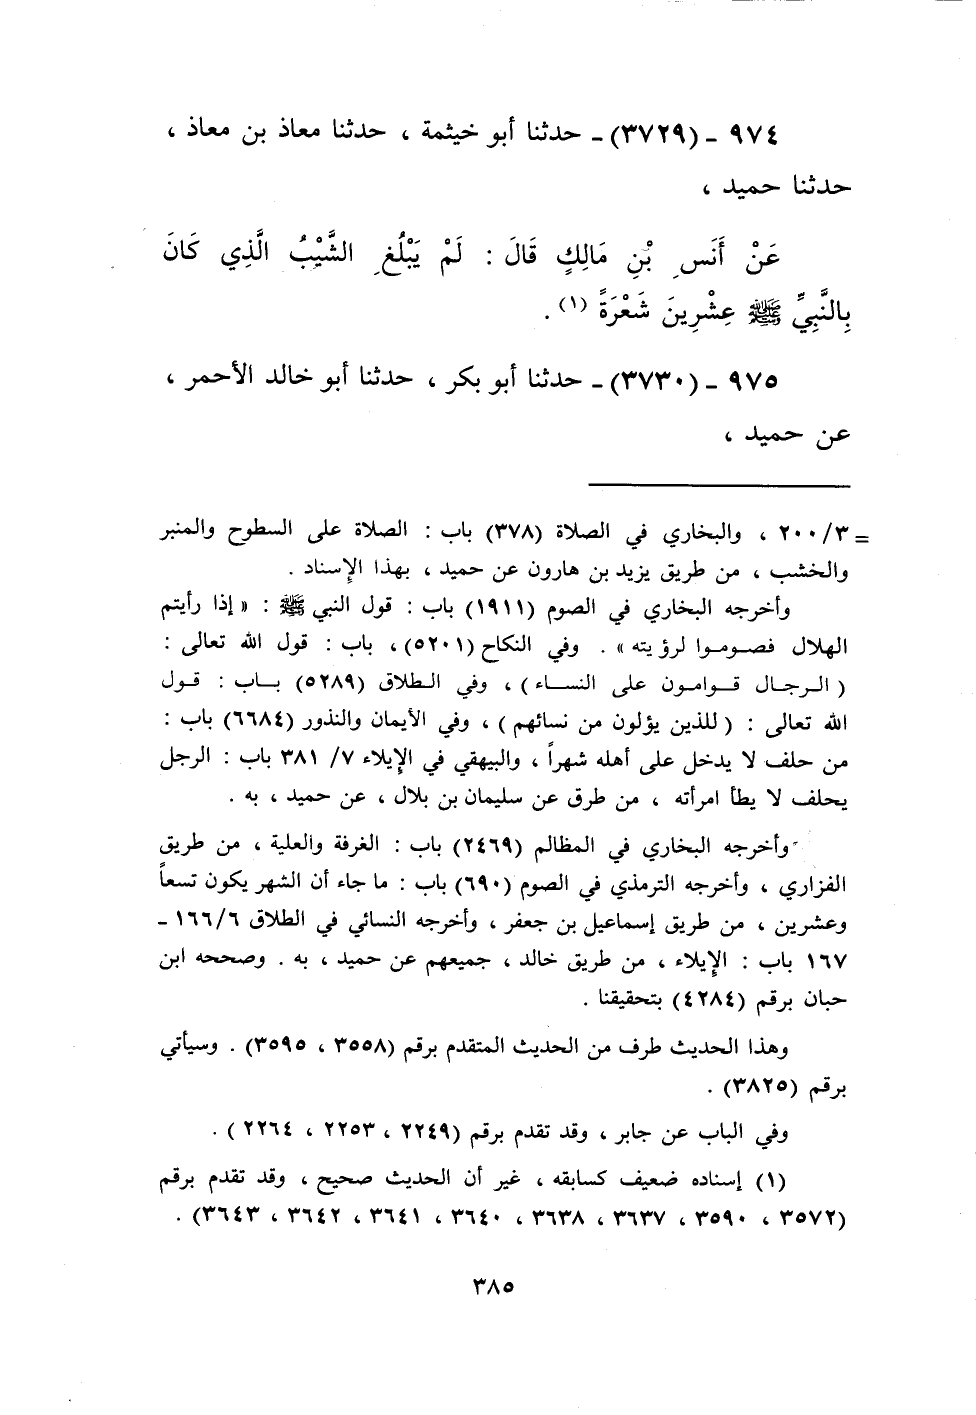 ٩٧٤ ـ (٣٧٢٩) ـ حدثنا أبو خيثمة ، حدثنا معاذ بن معاذ ،
حدثنا حميد ،
عَنْ أَنَسِ بْنِ مَالِكٍ قَالَ : لَمْ يَبْلُغِ الشَّيْبُ الَّذِي كَانَ
بِالنَّبِيِّ ﷺ عِشْرِينَ شَعْرَةً (١) .
٩٧٥ ـ (٣٧٣٠) ـ حدثنا أبو بكر ، حدثنا أبو خالد الأحمر ،
عن حميد ،
= ٢٠٠/٣ ، والبخاري في الصلاة (٣٧٨) باب : الصلاة على السطوح والمنبر
والخشب ، من طريق يزيد بن هارون عن حميد ، بهذا الإسناد .
وأخرجه البخاري في الصوم (١٩١١) باب : قول النبي ﷺ : « إذا رأيتم
الهلال فصوموا لرؤيته » . وفي النكاح (٥٢٠١) ، باب : قول الله تعالى :
( الرجال قوامون على النساء ) ، وفي الطلاق (٥٢٨٩) باب : قول
الله تعالى : ( للذين يؤلون من نسائهم ) ، وفي الأيمان والنذور (٦٦٨٤) باب :
من حلف لا يدخل على أهله شهراً ، والبيهقي في الإيلاء ٧/ ٣٨١ باب : الرجل
يحلف لا يطأ امرأته ، من طرق عن سليمان بن بلال ، عن حميد ، به .
وأخرجه البخاري في المظالم (٢٤٦٩) باب : الغرفة والعلية ، من طريق
الفزاري ، وأخرجه الترمذي في الصوم (٦٩٠) باب : ما جاء أن الشهر يكون تسعاً
وعشرين ، من طريق إسماعيل بن جعفر ، وأخرجه النسائي في الطلاق ١٦٦/٦ ـ
١٦٧ باب : الإيلاء ، من طريق خالد ، جميعهم عن حميد ، به . وصححه ابن
حبان برقم (٤٢٨٤) بتحقيقنا .
وهذا الحديث طرف من الحديث المتقدم برقم (٣٥٥٨ ، ٣٥٩٥) . وسيأتي
برقم (٣٨٢٥) .
وفي الباب عن جابر ، وقد تقدم برقم (٢٢٤٩ ، ٢٢٥٣ ، ٢٢٦٤ ) .
(١) إسناده ضعيف كسابقه ، غير أن الحديث صحيح ، وقد تقدم برقم
(٣٥٧٢ ، ٣٥٩٠ ، ٣٦٣٧ ، ٣٦٣٨ ، ٣٦٤٠ ، ٣٦٤١ ، ٣٦٤٢ ، ٣٦٤٣) .
٣٨٥